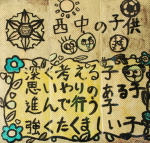 西中の子供
深く考える子
思いやりのある子
進んで行う子
強くたくましい子